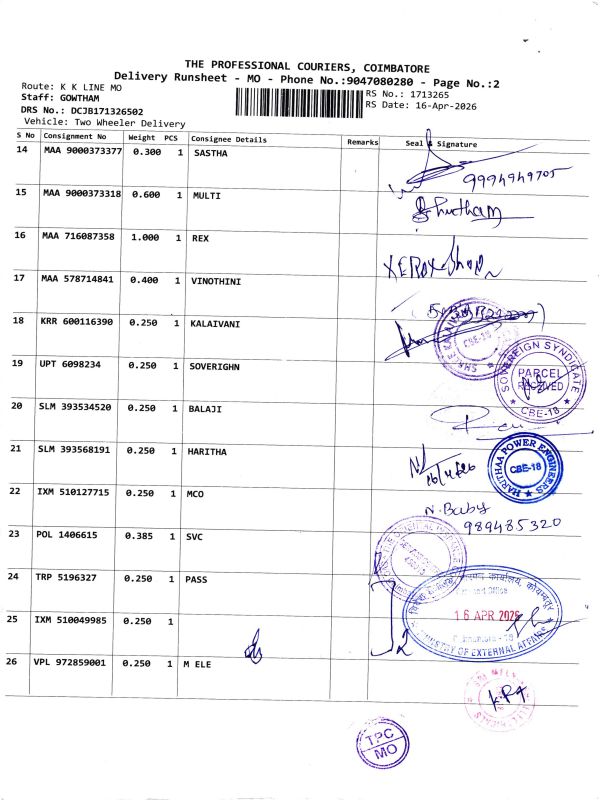 THE PROFESSIONAL COURIERS, COIMBATORE
Delivery Runsheet - MO - Phone No.:9047080280 - Page No.:2
Route: K K LINE MO
RS No.: 1713265
Staff: GOWTHAM
RS Date: 16-Apr-2026
DRS No.: DCJB171326502
Vehicle: Two Wheeler Delivery
S No Consignment No Weight PCS Consignee Details Remarks Seal & Signature
14 MAA 9000373377 0.300 1 SASTHA
9994949705
15 MAA 9000373318 0.600 1 MULTI
16 MAA 716087358 1.000 1 REX
XEROX Shop
17 MAA 578714841 0.400 1 VINOTHINI
18 KRR 600116390 0.250 1 KALAIVANI
CBE-18
19 UPT 6098234 0.250 1 SOVERIGHN
SOVEREIGN SYNDICATE
PARCEL
RECEIVED
CBE-18
20 SLM 393534520 0.250 1 BALAJI
21 SLM 393568191 0.250 1 HARITHA
16/4/26
HARTHAA POWER ENGINEERS
CBE-18
22 IXM 510127715 0.250 1 MCO
N. Baby
989485320
23 POL 1406615 0.385 1 SVC
24 TRP 5196327 0.250 1 PASS
16 APR 2026
MINISTRY OF EXTERNAL AFFAIRS
25 IXM 510049985 0.250 1
26 VPL 972859001 0.250 1 M ELE
TPC
MO